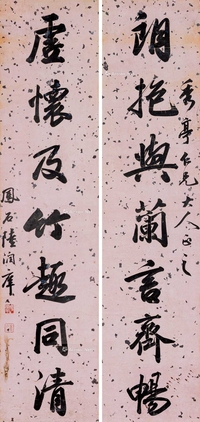 朗抱與蘭言齊暢
香亭仁兄大人正之
虛懷及竹趣同清
鳳石陸潤庠